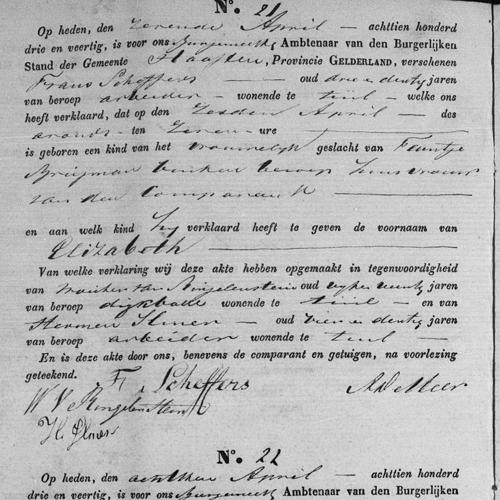 No. 21
Op heden, den zevende April — achttien honderd
drie en veertig, is voor ons Burgemeester Ambtenaar van den Burgerlijken
Stand der Gemeente Haaften, Provincie GELDERLAND, verschenen
Frans Scheffers — oud drie en dertig jaren
van beroep arbeider — wonende te tuil — welke ons
heeft verklaard, dat op den Zesden April — des
avonds — ten Zeven — ure
is geboren een kind van het vrouwelijk geslacht van
beroep huisvrouw
van den Comparant
en aan welk kind hij verklaard heeft te geven de voornaam van
Elizabeth
Van welke verklaring wij deze akte hebben opgemaakt in tegenwoordigheid
van van oud veertig jaren
van beroep wonende te tuil — en van
Hermen — oud vier en dertig jaren
van beroep arbeider wonende te tuil —
En is deze akte door ons, benevens de comparant en getuigen, na voorlezing
geteekend. F. Scheffers
No. 22
Op heden, den achttken April — achttien honderd
drie en veertig, is voor ons Burgemeester Ambtenaar van den Burgerlijken